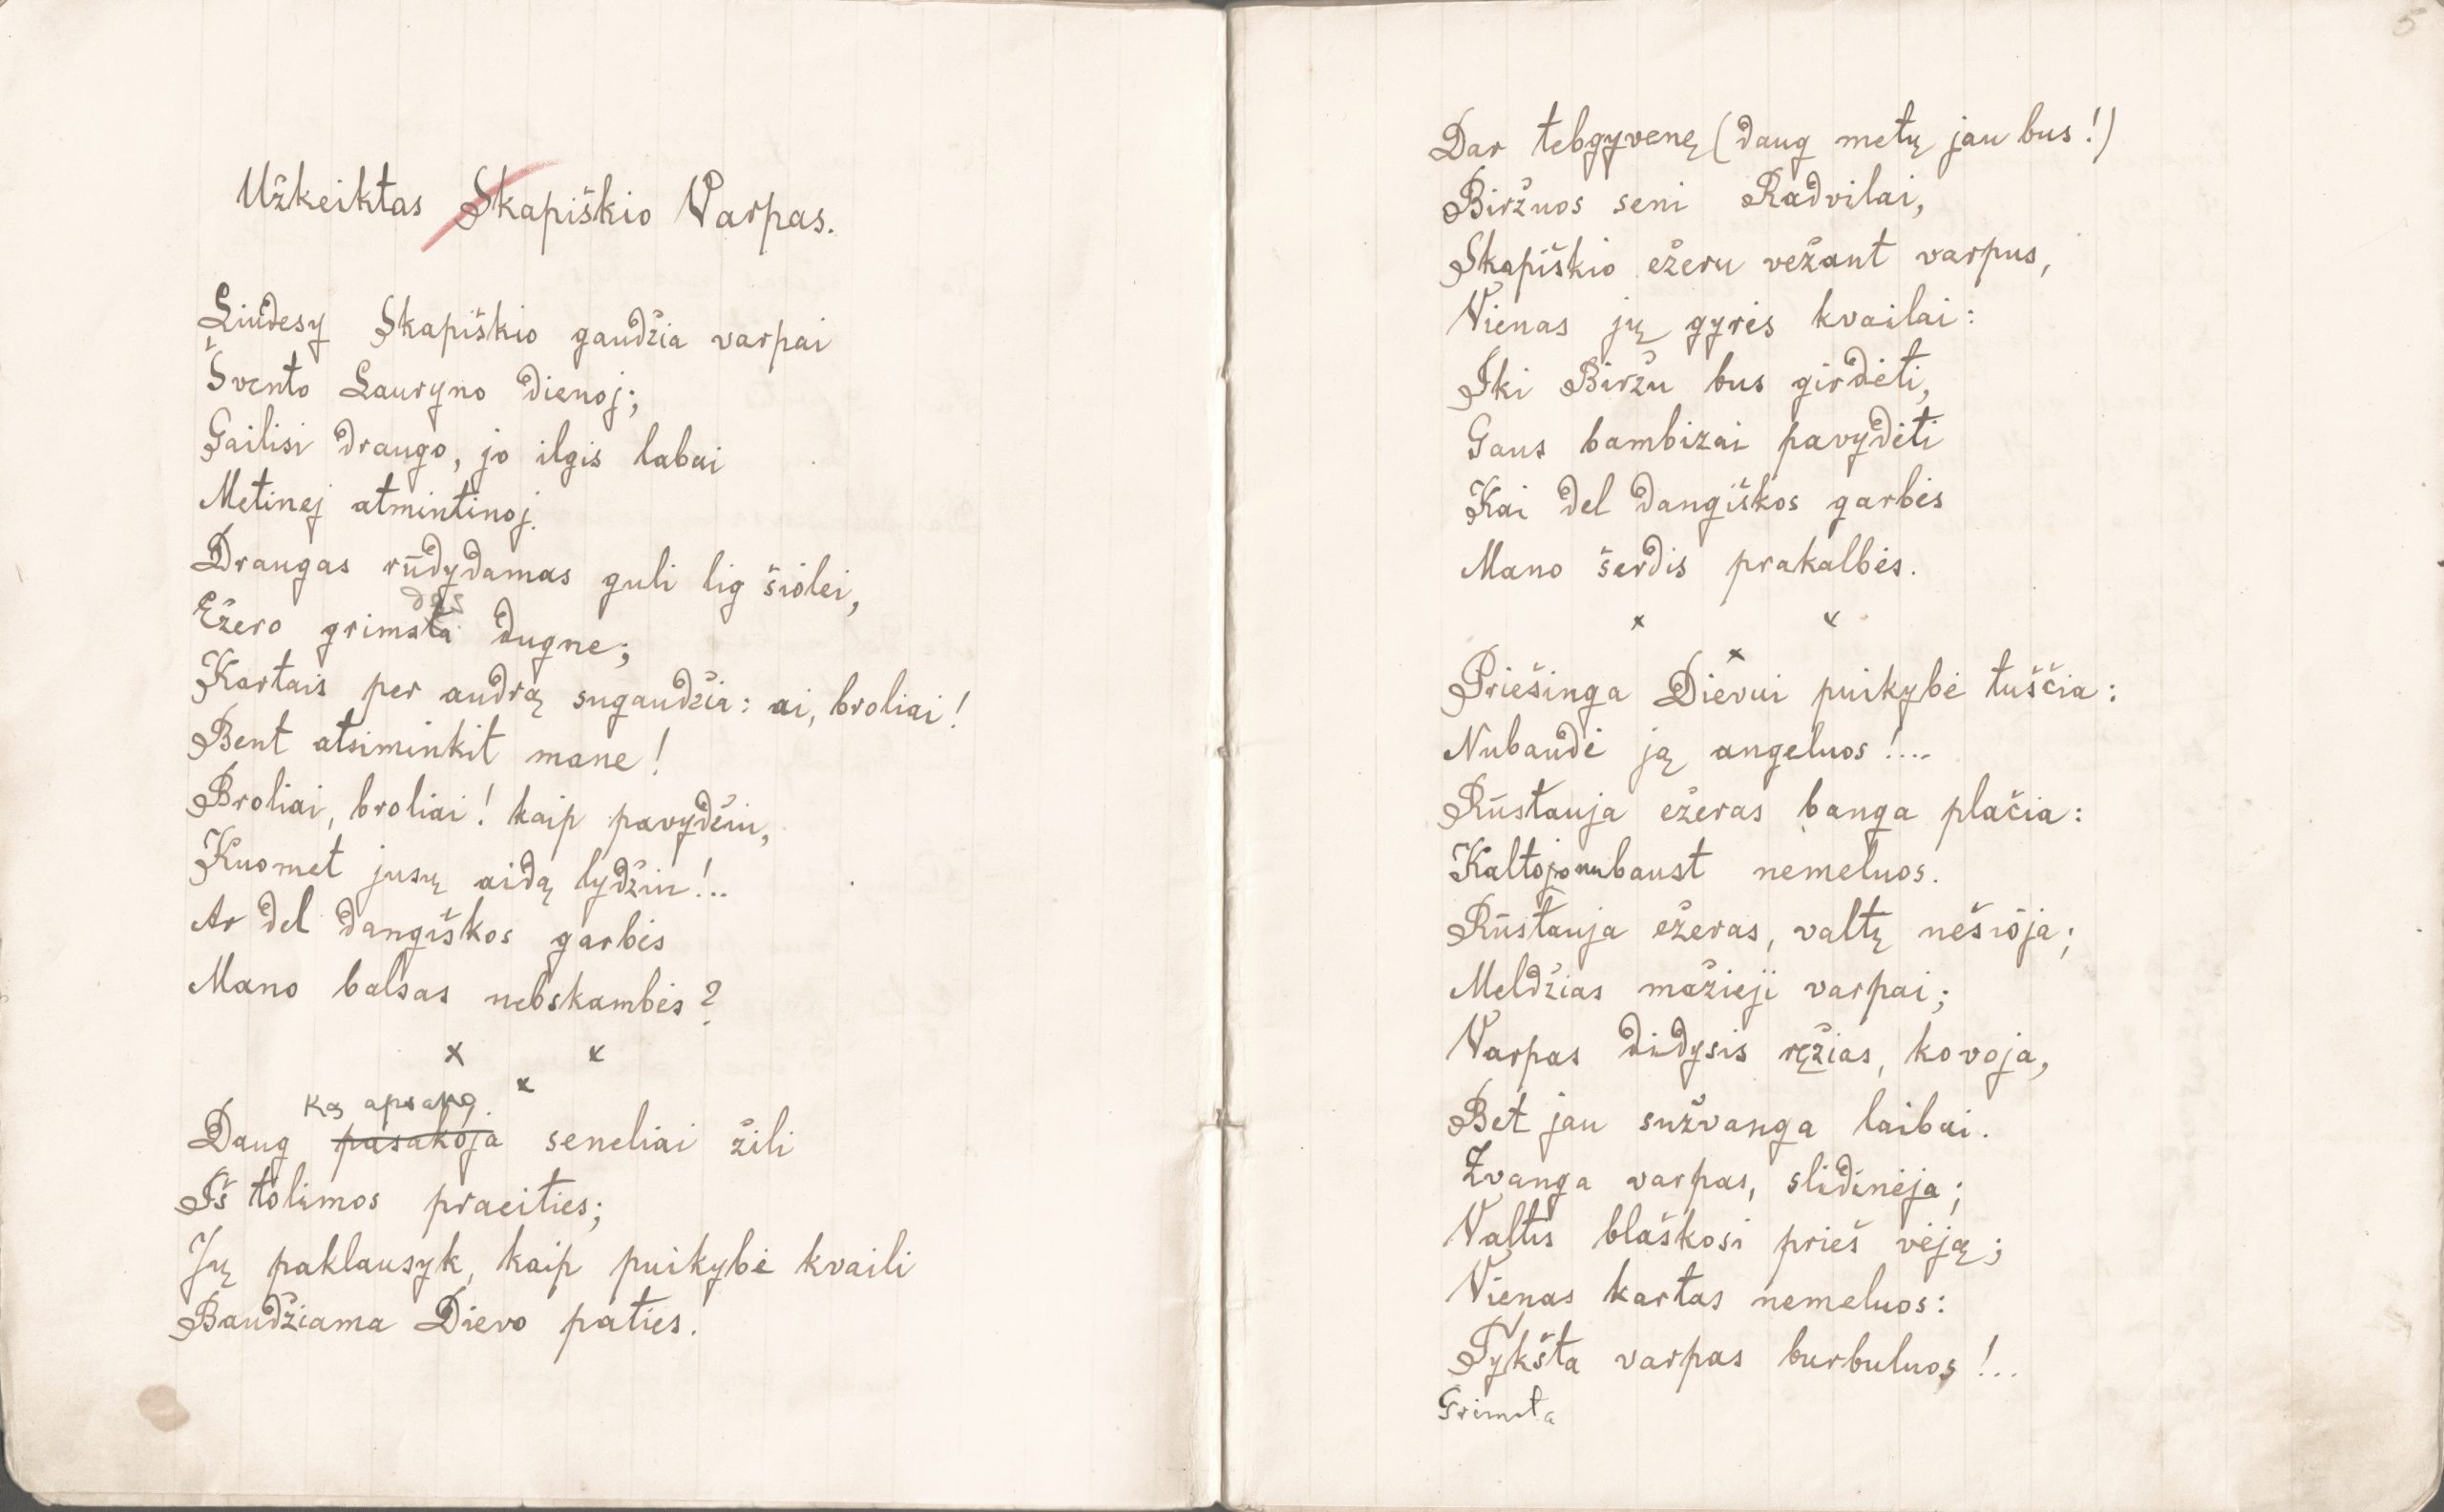 Užkeiktas Skapiškio Varpas.
Liūdesy Skapiškio gaudžia varpai
Švento Lauryno dienoj;
Gailisi draugo, jo ilgis labai
Metinej atmintinoj.
Draugas rūdydamas guli lig šiolei,
das
Ežero grimsta dugne;
Kartais per audrą sugaudžia: ai, broliai!
Bent atsiminkit mane!
Broliai, broliai! kaip pavydžiu,
Kuomet jusų aidą lydžiu!..
Ar del dangiškos garbės
Mano balsas nebskambės?
x x
x
Ką apsako
Daug pasakoja seneliai žili
Iš tolimos praeities;
Jų paklausyk, kaip puikybė kvaili
Baudžiama Dievo paties.
5
Dar tebgyvenę (daug metų jau bus!)
Biržuos seni Radvilai,
Skapiškio ežeru vežant varpus,
Vienas jų gyrės kvailai:
Iki Biržu bus girdėti,
Gaus bambizai pavydėti
Kai del dangiškos garbės
Mano šerdis prakalbės.
x x
x
Priešinga Dievui puikybė tuščia:
Nubaudė ją angeluos!...
Rūstauja ežeras banga plačia:
Kaltojo nubaust nemeluos.
Rūstauja ežeras, valtį nešioja;
Meldžias mažieji varpai;
Varpas didysis ręžias, kovoja,
Bet jau sužvanga laibai.
Žvanga varpas, slidinėja;
Valtis blaškosi prieš vėją;
Vienas kartas nemeluos:
Tykšta varpas burbuluos!..
Grimsta